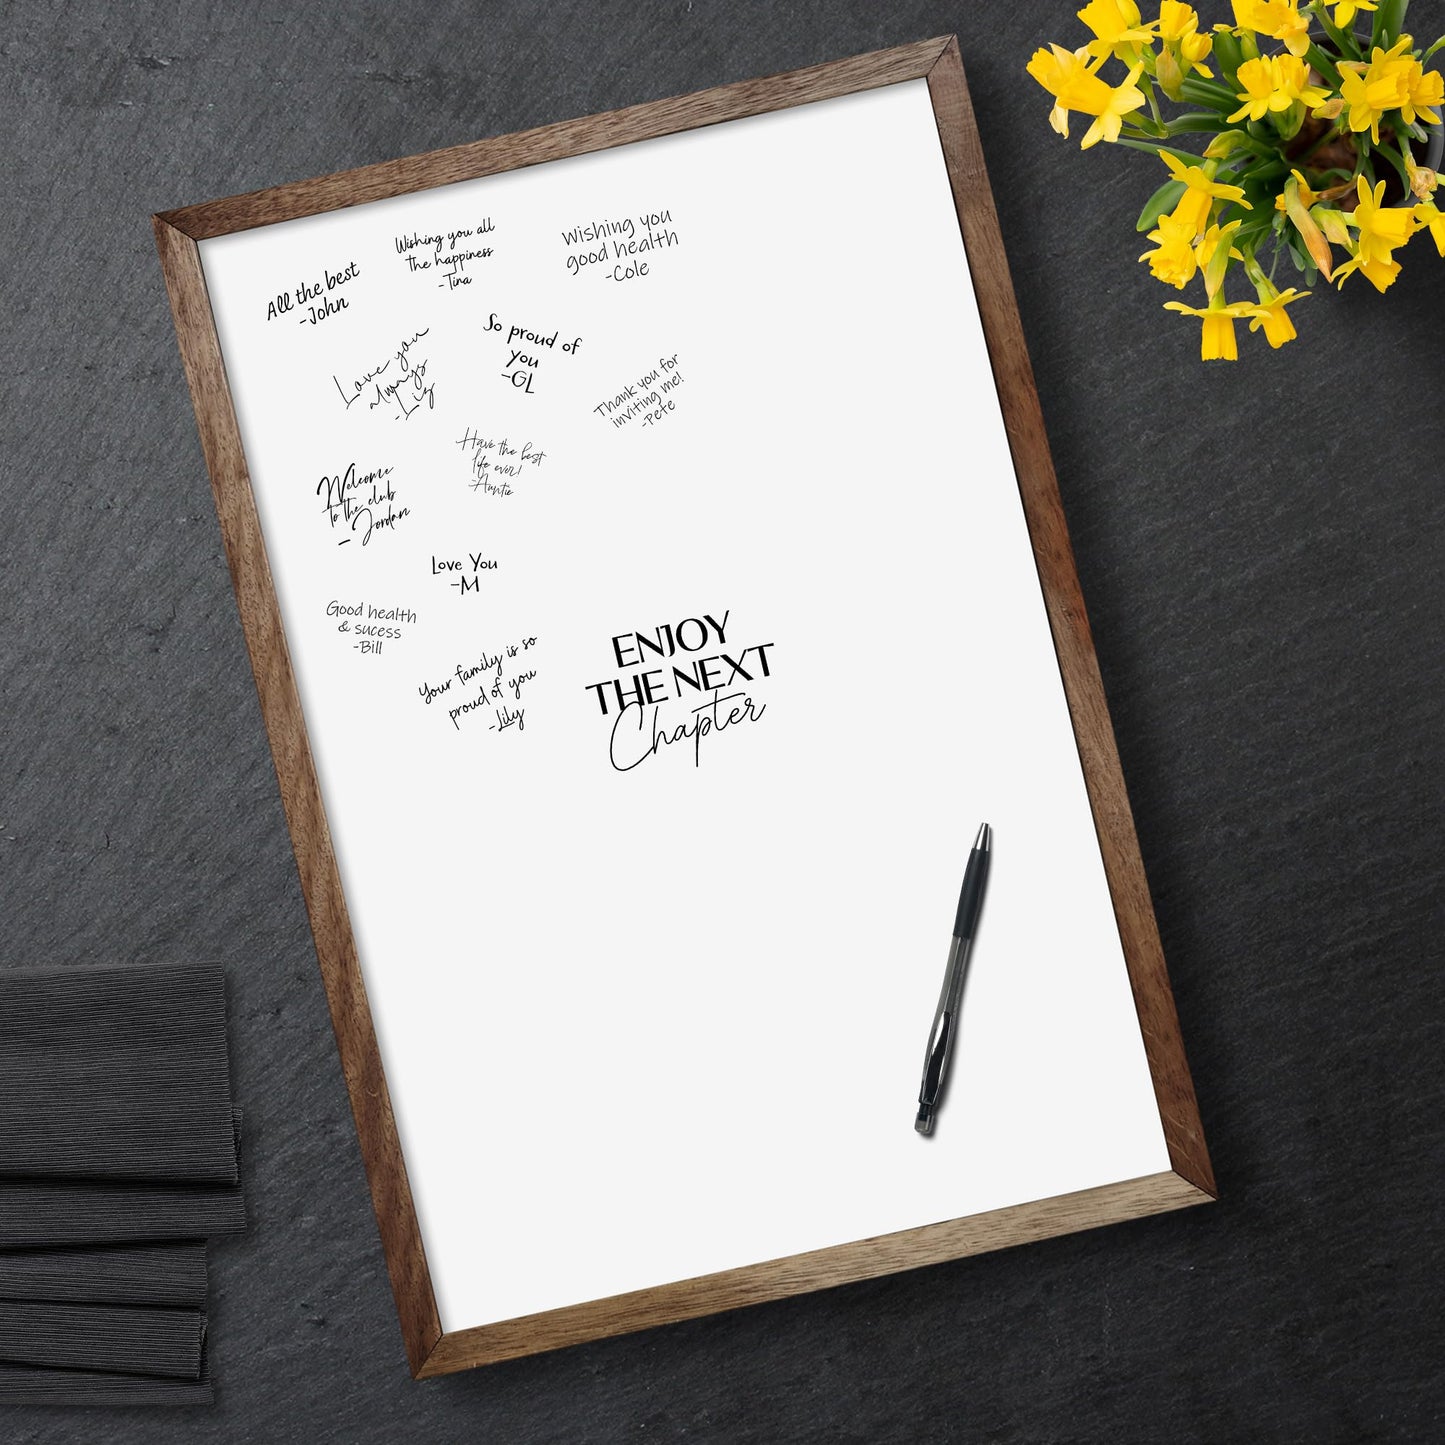 All the best
-John
Wishing you all
the happiness
-Tina
Wishing you
good health
-Cole
Love you
always
-Liz
So proud of
you
-GL
Thank you for
inviting me!
-Pete
Have the best
life ever!
-Auntie
Welcome
to the club
- Jordan
Love You
-M
Good health
& sucess
-Bill
Your family is so
proud of you
-Lily
ENJOY
THE NEXT
Chapter